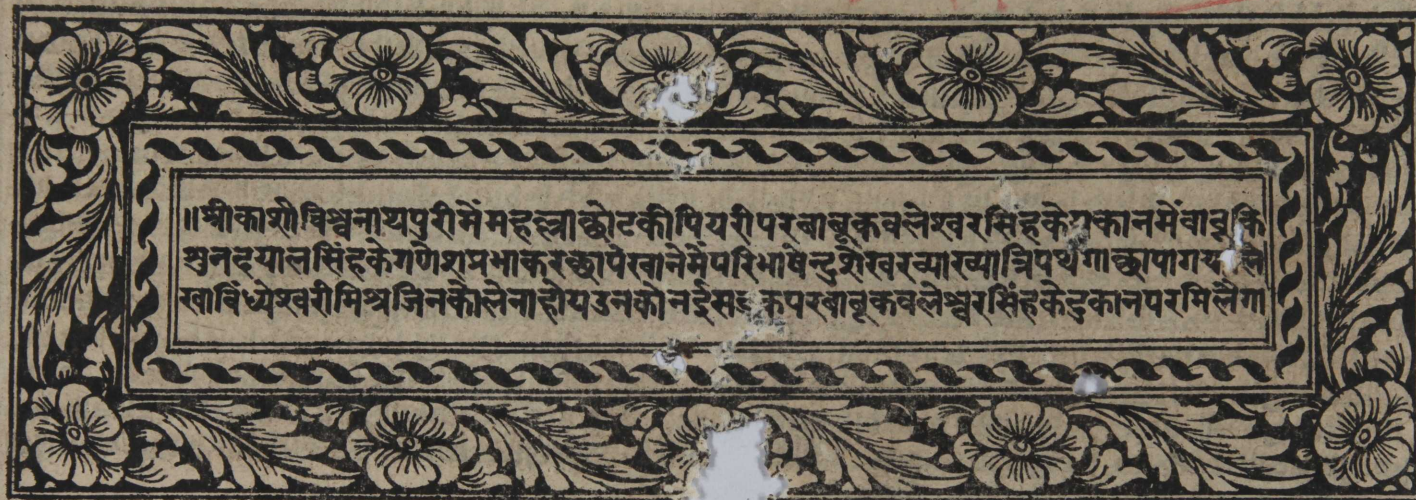 ॥श्रीकाशीविश्वनाथपुरीमेंमहल्लाछोटकीपियरीपरबाबूकवलेश्वरसिंहकेमकानमेंबाबूकि
शुनदयालसिंहकेगणेशप्रभाकरछापेखानेमेंपरिभाषेन्दुशेखरव्याख्यात्रिपथगाछापागया
खाविंध्येश्वरीमिश्रजिनकोलेनाहोयउनकोनईसडकपरबाबूकवलेश्वरसिंहकेदुकानपरमिलैगा